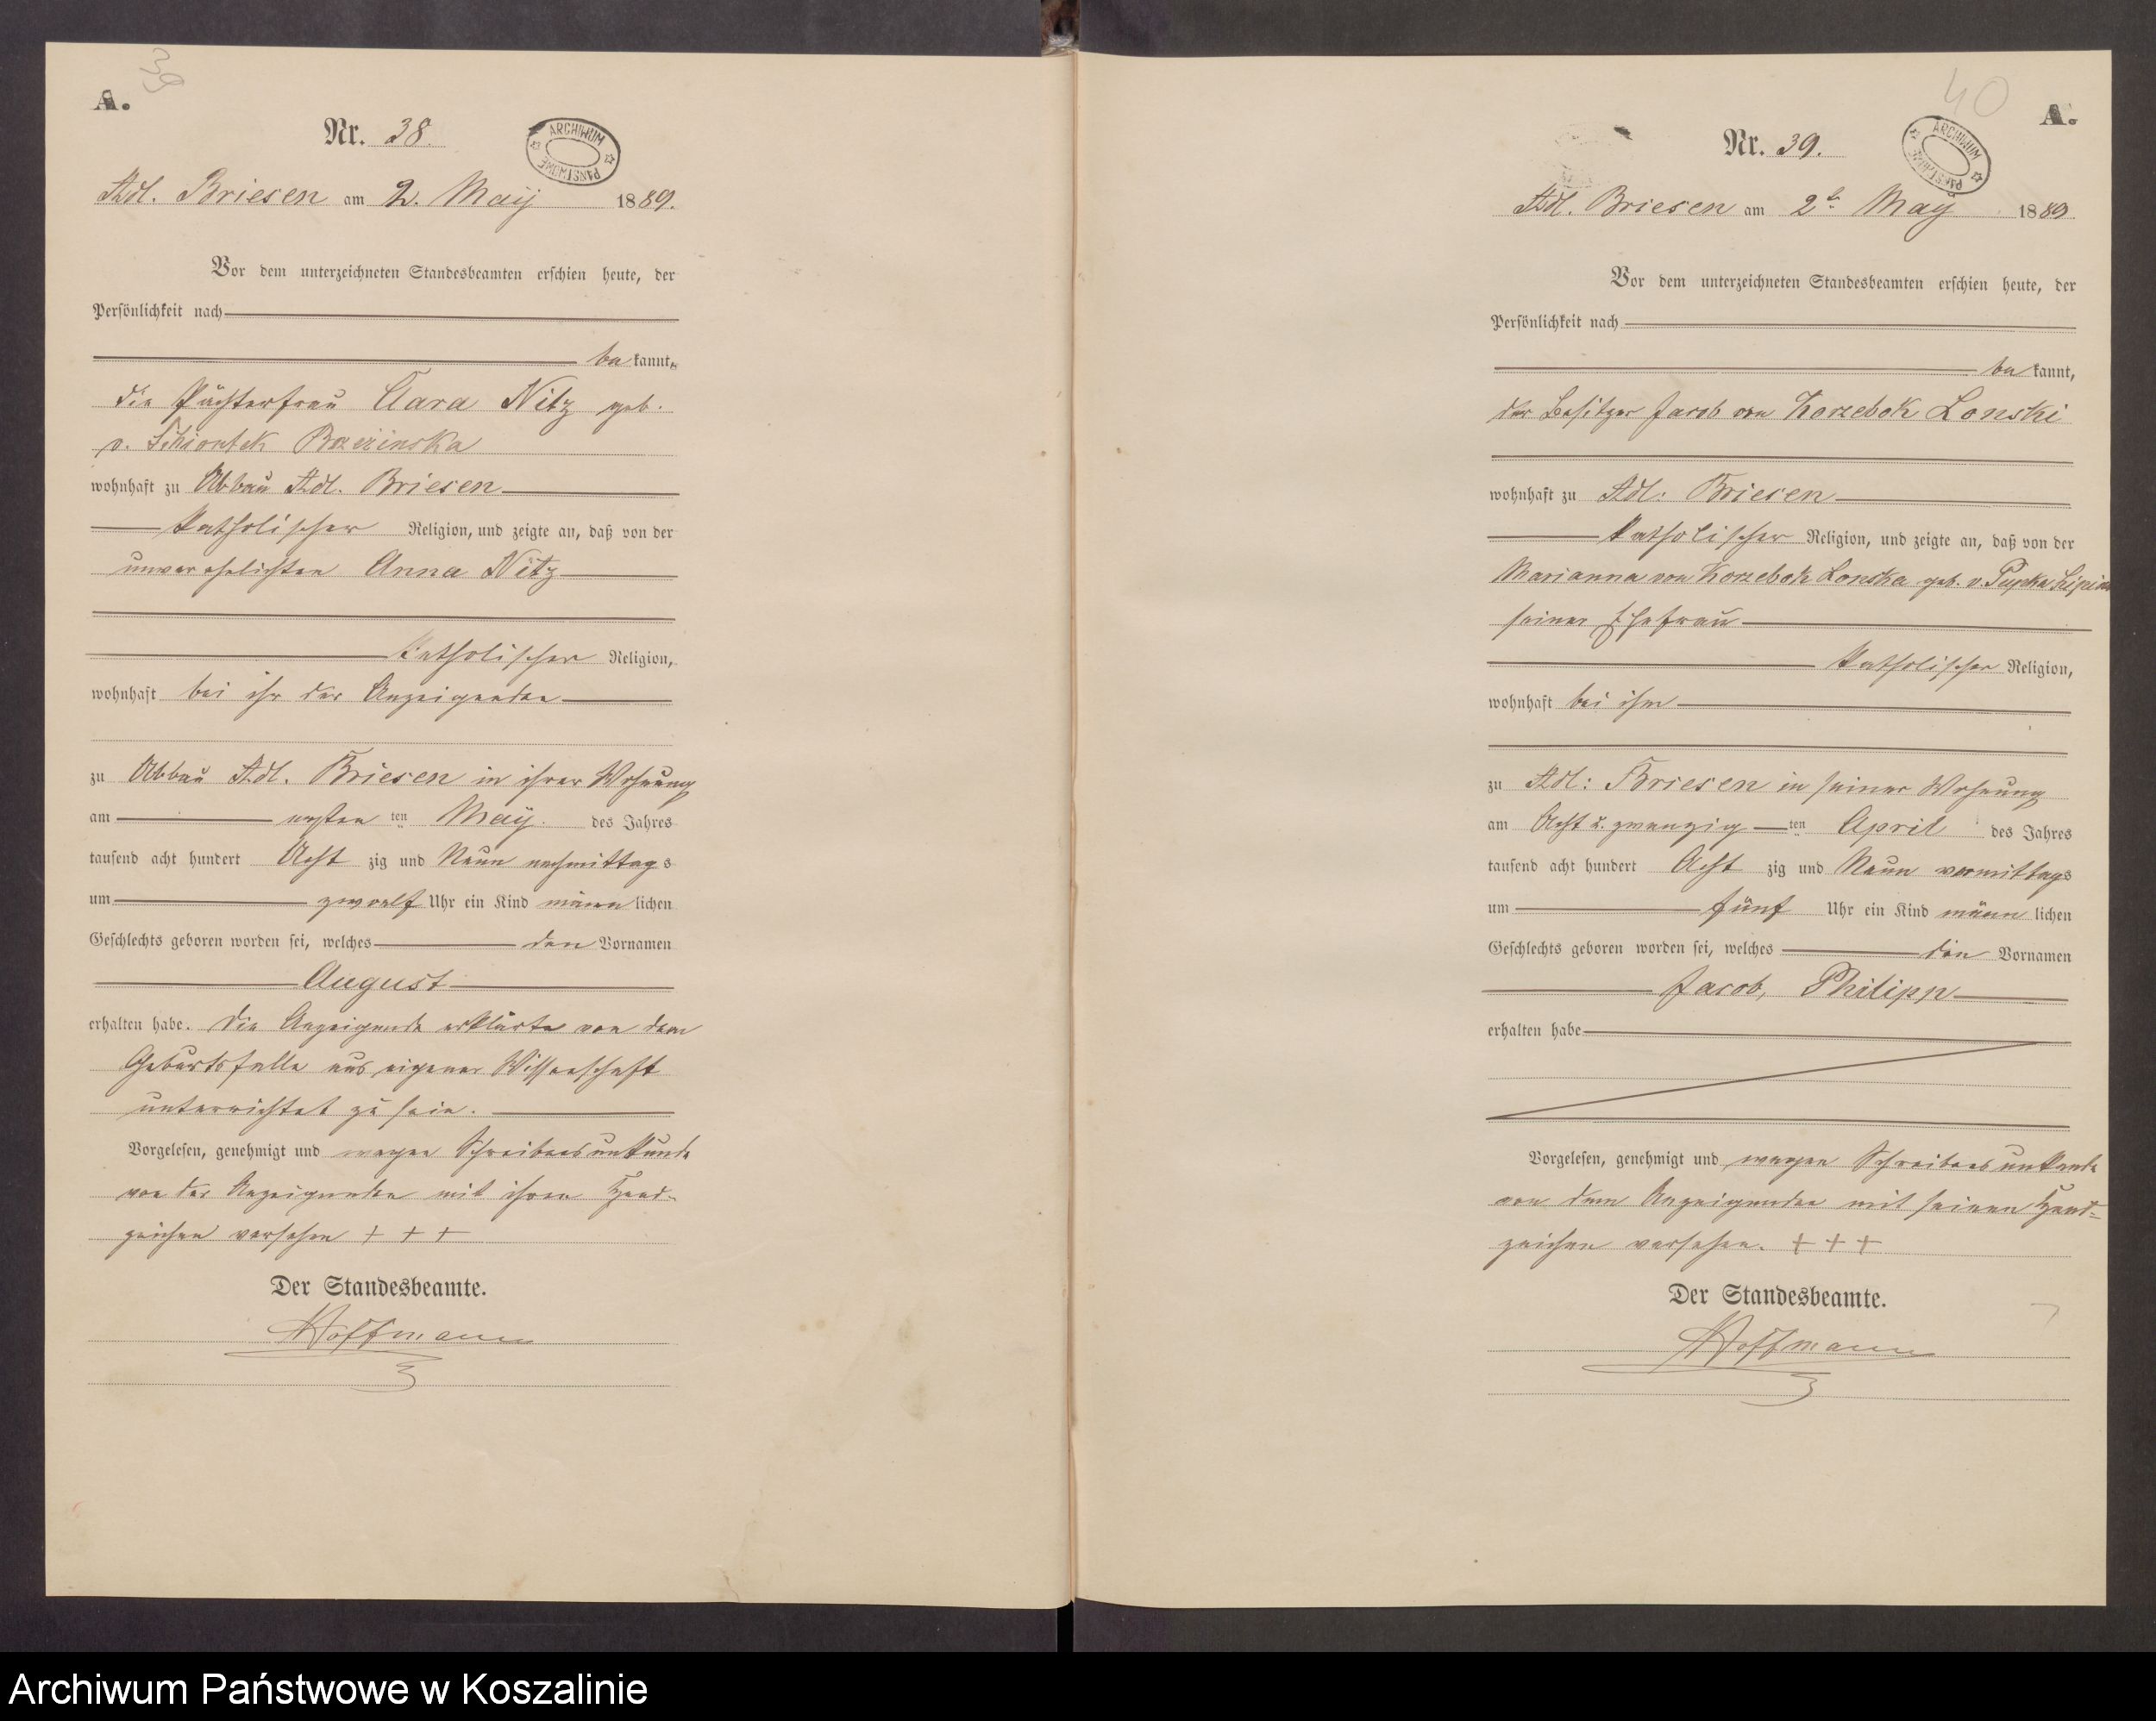 39
A.
Nr. 38.
ARCHIWUM PAŃSTWOWE
Adl. Briesen am 2. Maÿ 1889.
Vor dem unterzeichneten Standesbeamten erschien heute, der
Persönlichkeit nach
bekannt,
die Pächterfrau Clara Nitz geb.
v.
wohnhaft zu Abbau Adl. Briesen
katholischer Religion, und zeigte an, daß von der
unverehelichten Anna Nitz
katholischer Religion,
wohnhaft bei ihr der Anzeigenden
zu Abbau Adl. Briesen in ihrer Wohnung
am ersten ten Maÿ des Jahres
tausend acht hundert Acht zig und Neun nachmittags
um zwoelf Uhr ein Kind männlichen
Geschlechts geboren worden sei, welches den Vornamen
August
erhalten habe. Die Anzeigende erklärte von dem
Geburtsfalle aus eigener Wissenschaft
unterrichtet zu sein.
Vorgelesen, genehmigt und wegen Schreibensunkunde
von der Anzeigenden mit ihren Hand-
zeichen versehen + + +
Der Standesbeamte.
Hoffmann
40
A.
Nr. 39.
ARCHIWUM PAŃSTWOWE
Adl. Briesen am 2t. Maÿ 1889
Vor dem unterzeichneten Standesbeamten erschien heute, der
Persönlichkeit nach
bekannt,
der Besitzer Jacob von Korzebok Lonski
wohnhaft zu Adl: Briesen
katholischer Religion, und zeigte an, daß von der
Marianna von Korzebok Lonska geb. v. Pupka
seiner Ehefrau
katholischer Religion,
wohnhaft bei ihm
zu Adl: Briesen in seiner Wohnung
am Acht u. zwanzig ten April des Jahres
tausend acht hundert Acht zig und Neun vormittags
um fünf Uhr ein Kind männlichen
Geschlechts geboren worden sei, welches die Vornamen
Jacob, Philipp
erhalten habe
Vorgelesen, genehmigt und wegen Schreibensunkunde
von dem Anzeigenden mit seinen Hand=
zeichen versehen. + + +
Der Standesbeamte.
Hoffmann
Archiwum Państwowe w Koszalinie